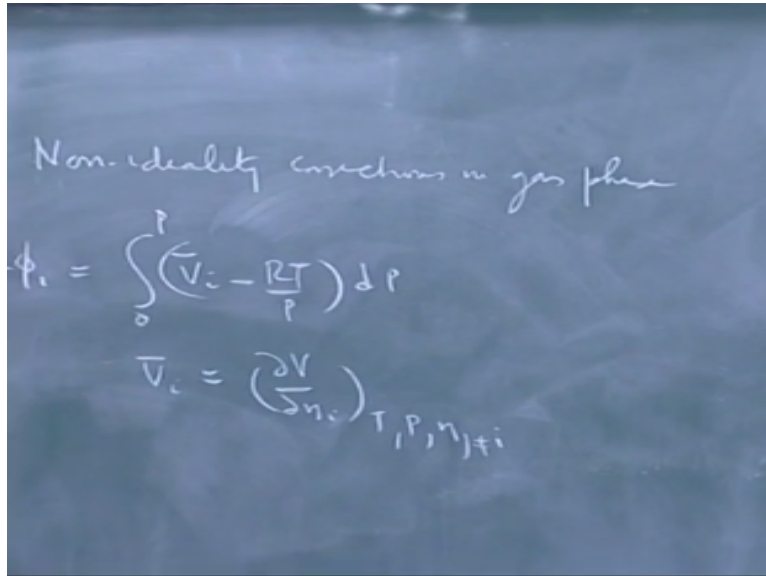 Non-ideality corrections in gas phase
ϕᵢ = ∫₀ᴾ (V̄ᵢ − RT/P) dP
V̄ᵢ = (∂V/∂nᵢ)_T, P, n_j≠i